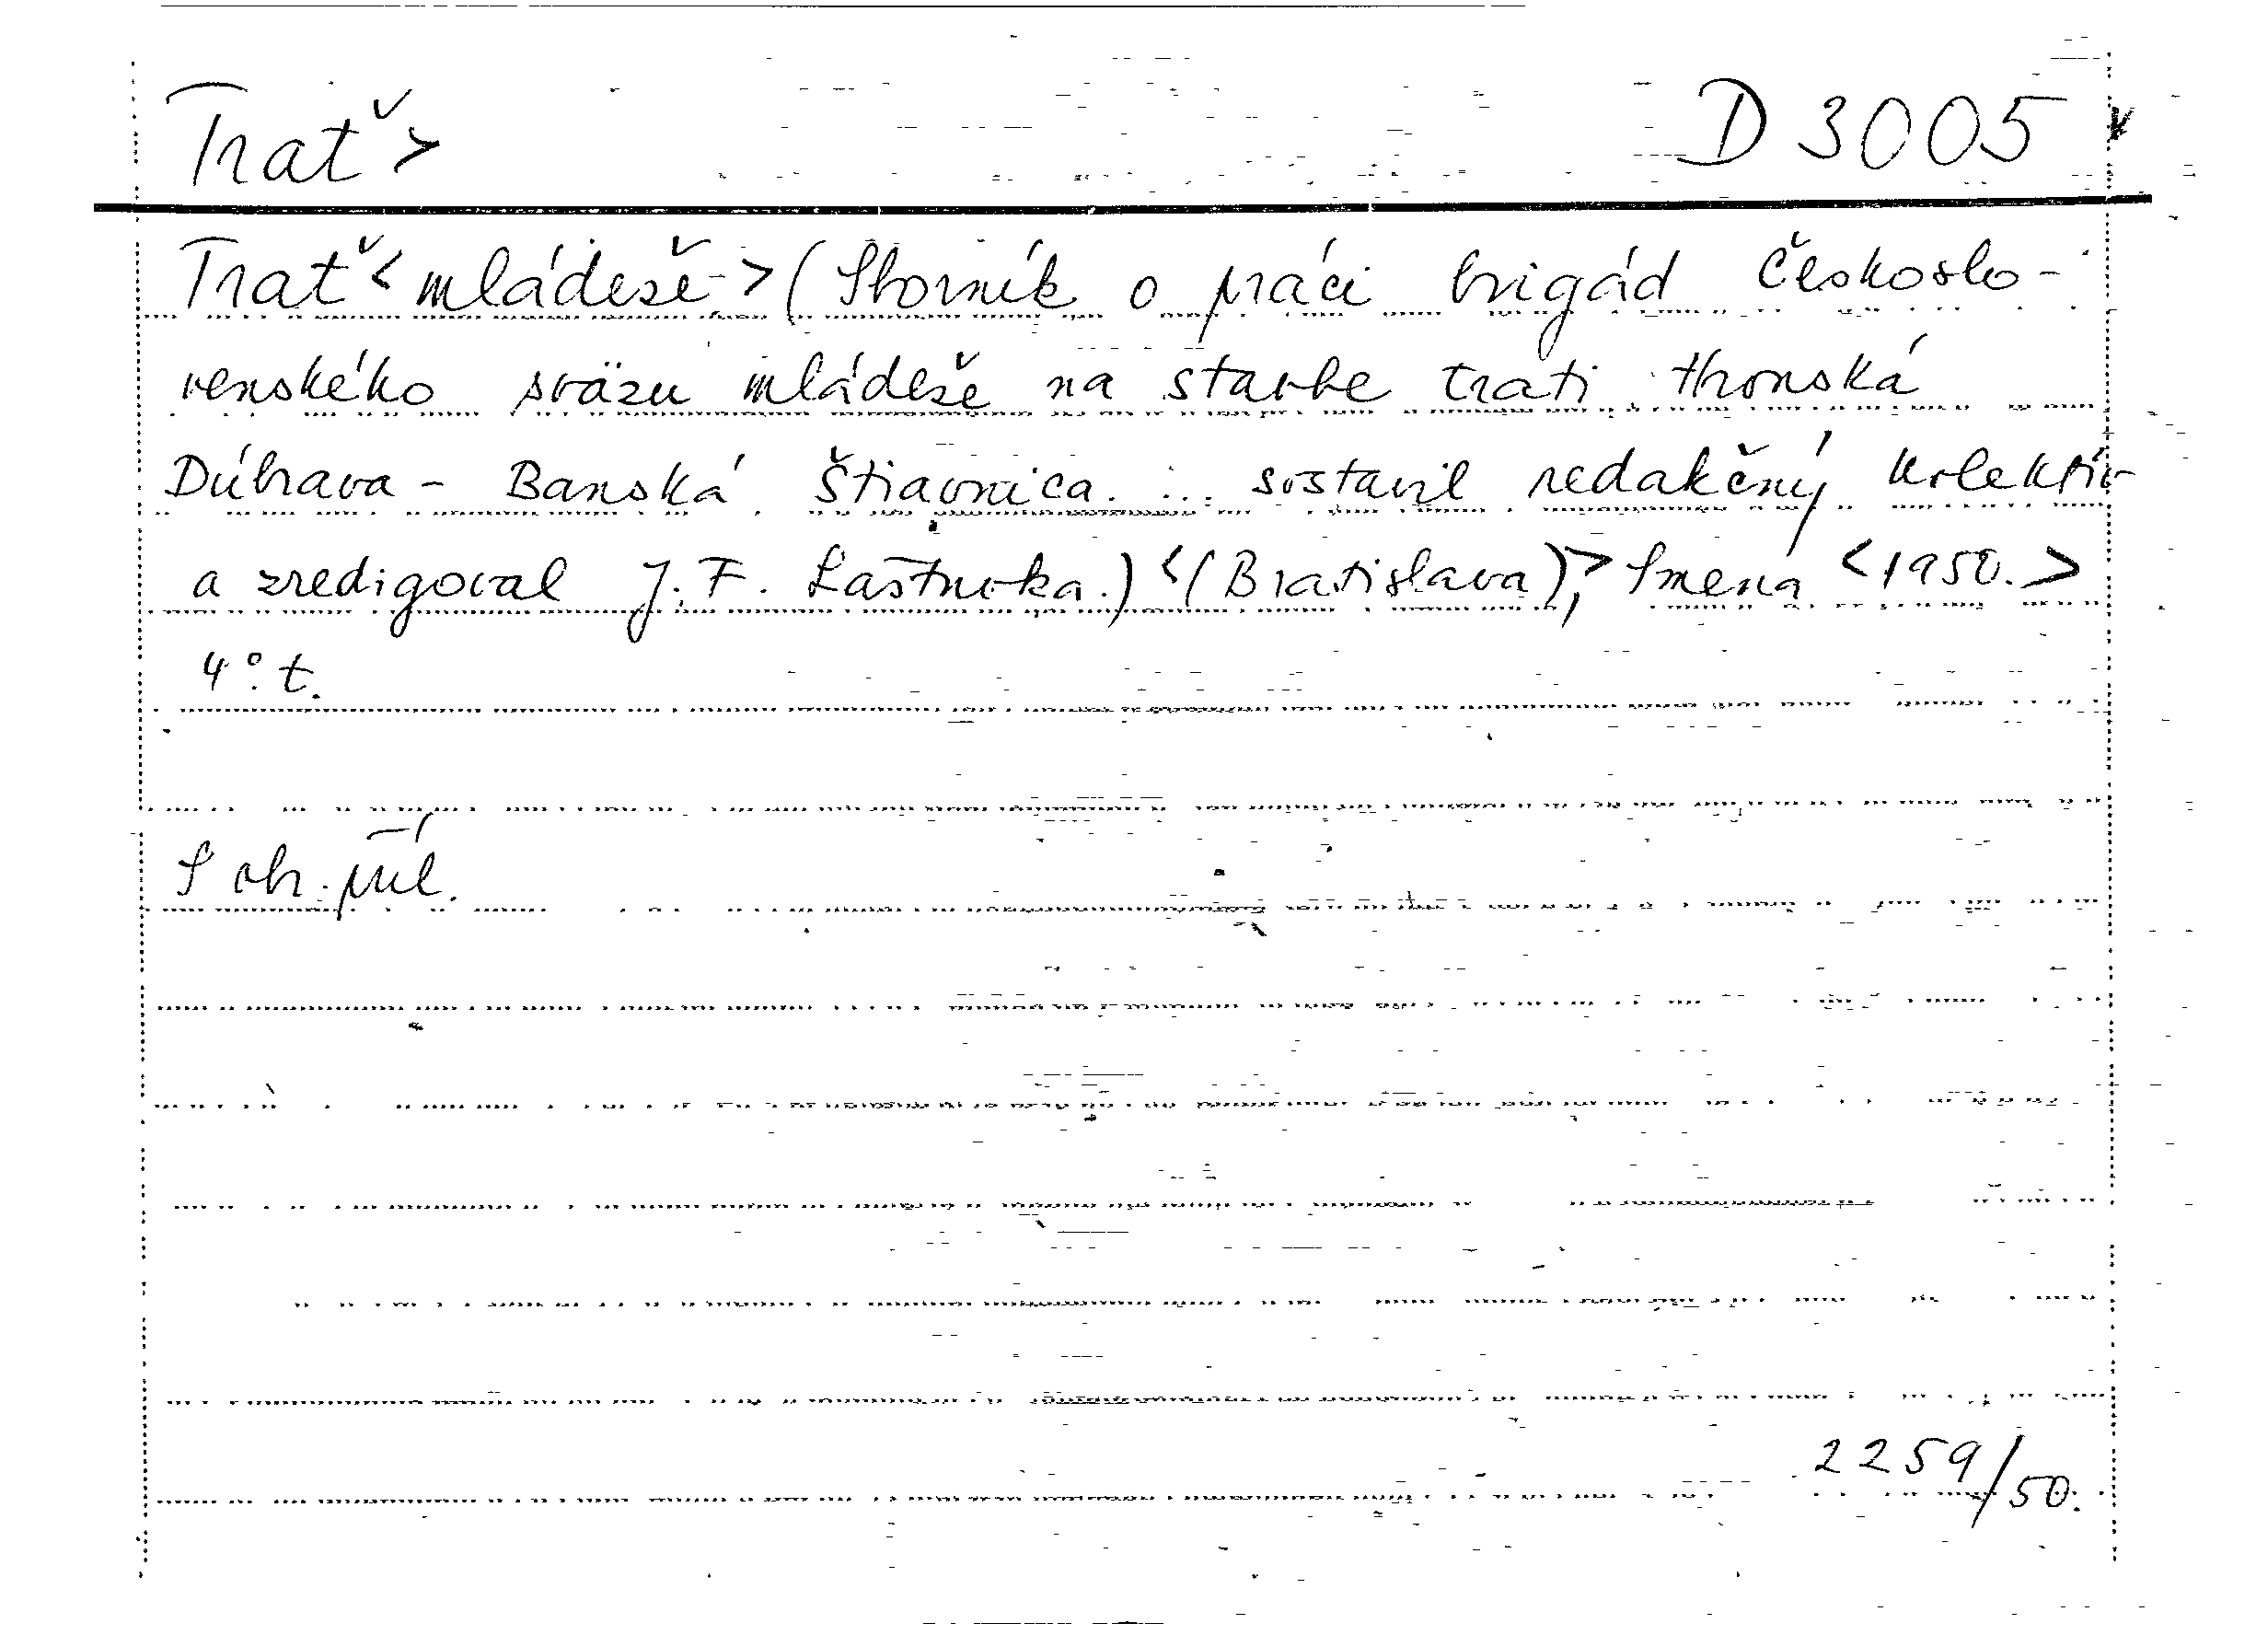 Trať >
D 3005
Trať < mládeže > ( Sborník o práci brigád českoslo-
venského sväzu mládeže na stavbe trati Hronská
Dúbrava - Banská Štiavnica. ... sostavil redakčný kolektív
a zredigoval J. F. Laštuvka.) < (Bratislava), > Smena < 1950. >
4°. t.
S obr. príl.
2259/50.